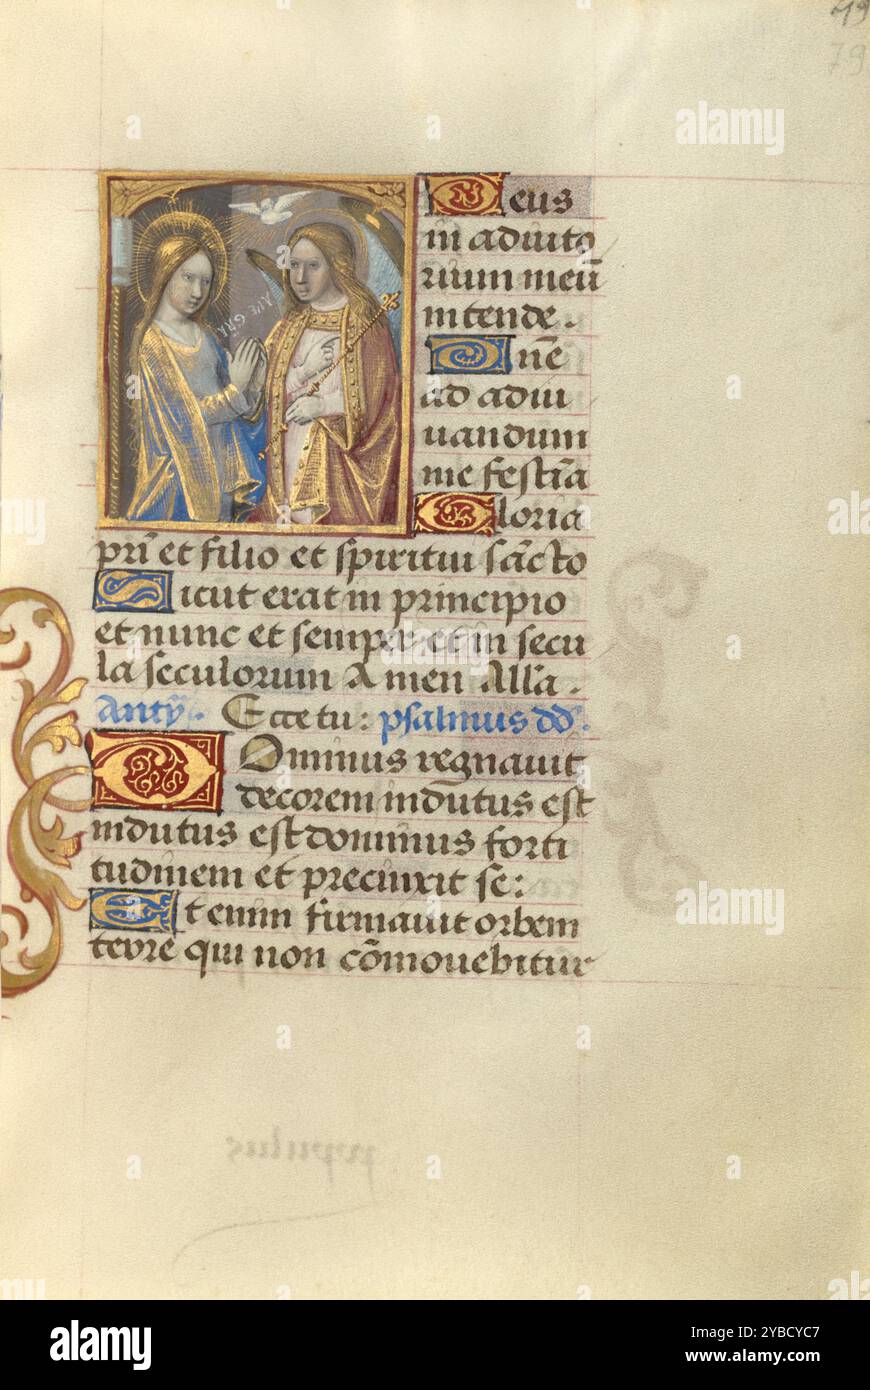 79
79
AVE GRA
Deus
in adiuto
rium meū
intende.
Dne
ad adiu
uandum
me festīa
Gloria
pri et filio et spiritui sācto
Sicut erat in principio
et nunc et semper et in secu
la seculorum Amen Alla.
Anty. Ecce tu: psalmus dd.
Dominus regnauit
decorem indutus est
indutus est dominus forti
tudinem et precinxit se:
Et enim firmauit orbem
terre qui non cōmouebitur
populus
alamy
Image ID: 2YBCYC7
www.alamy.com